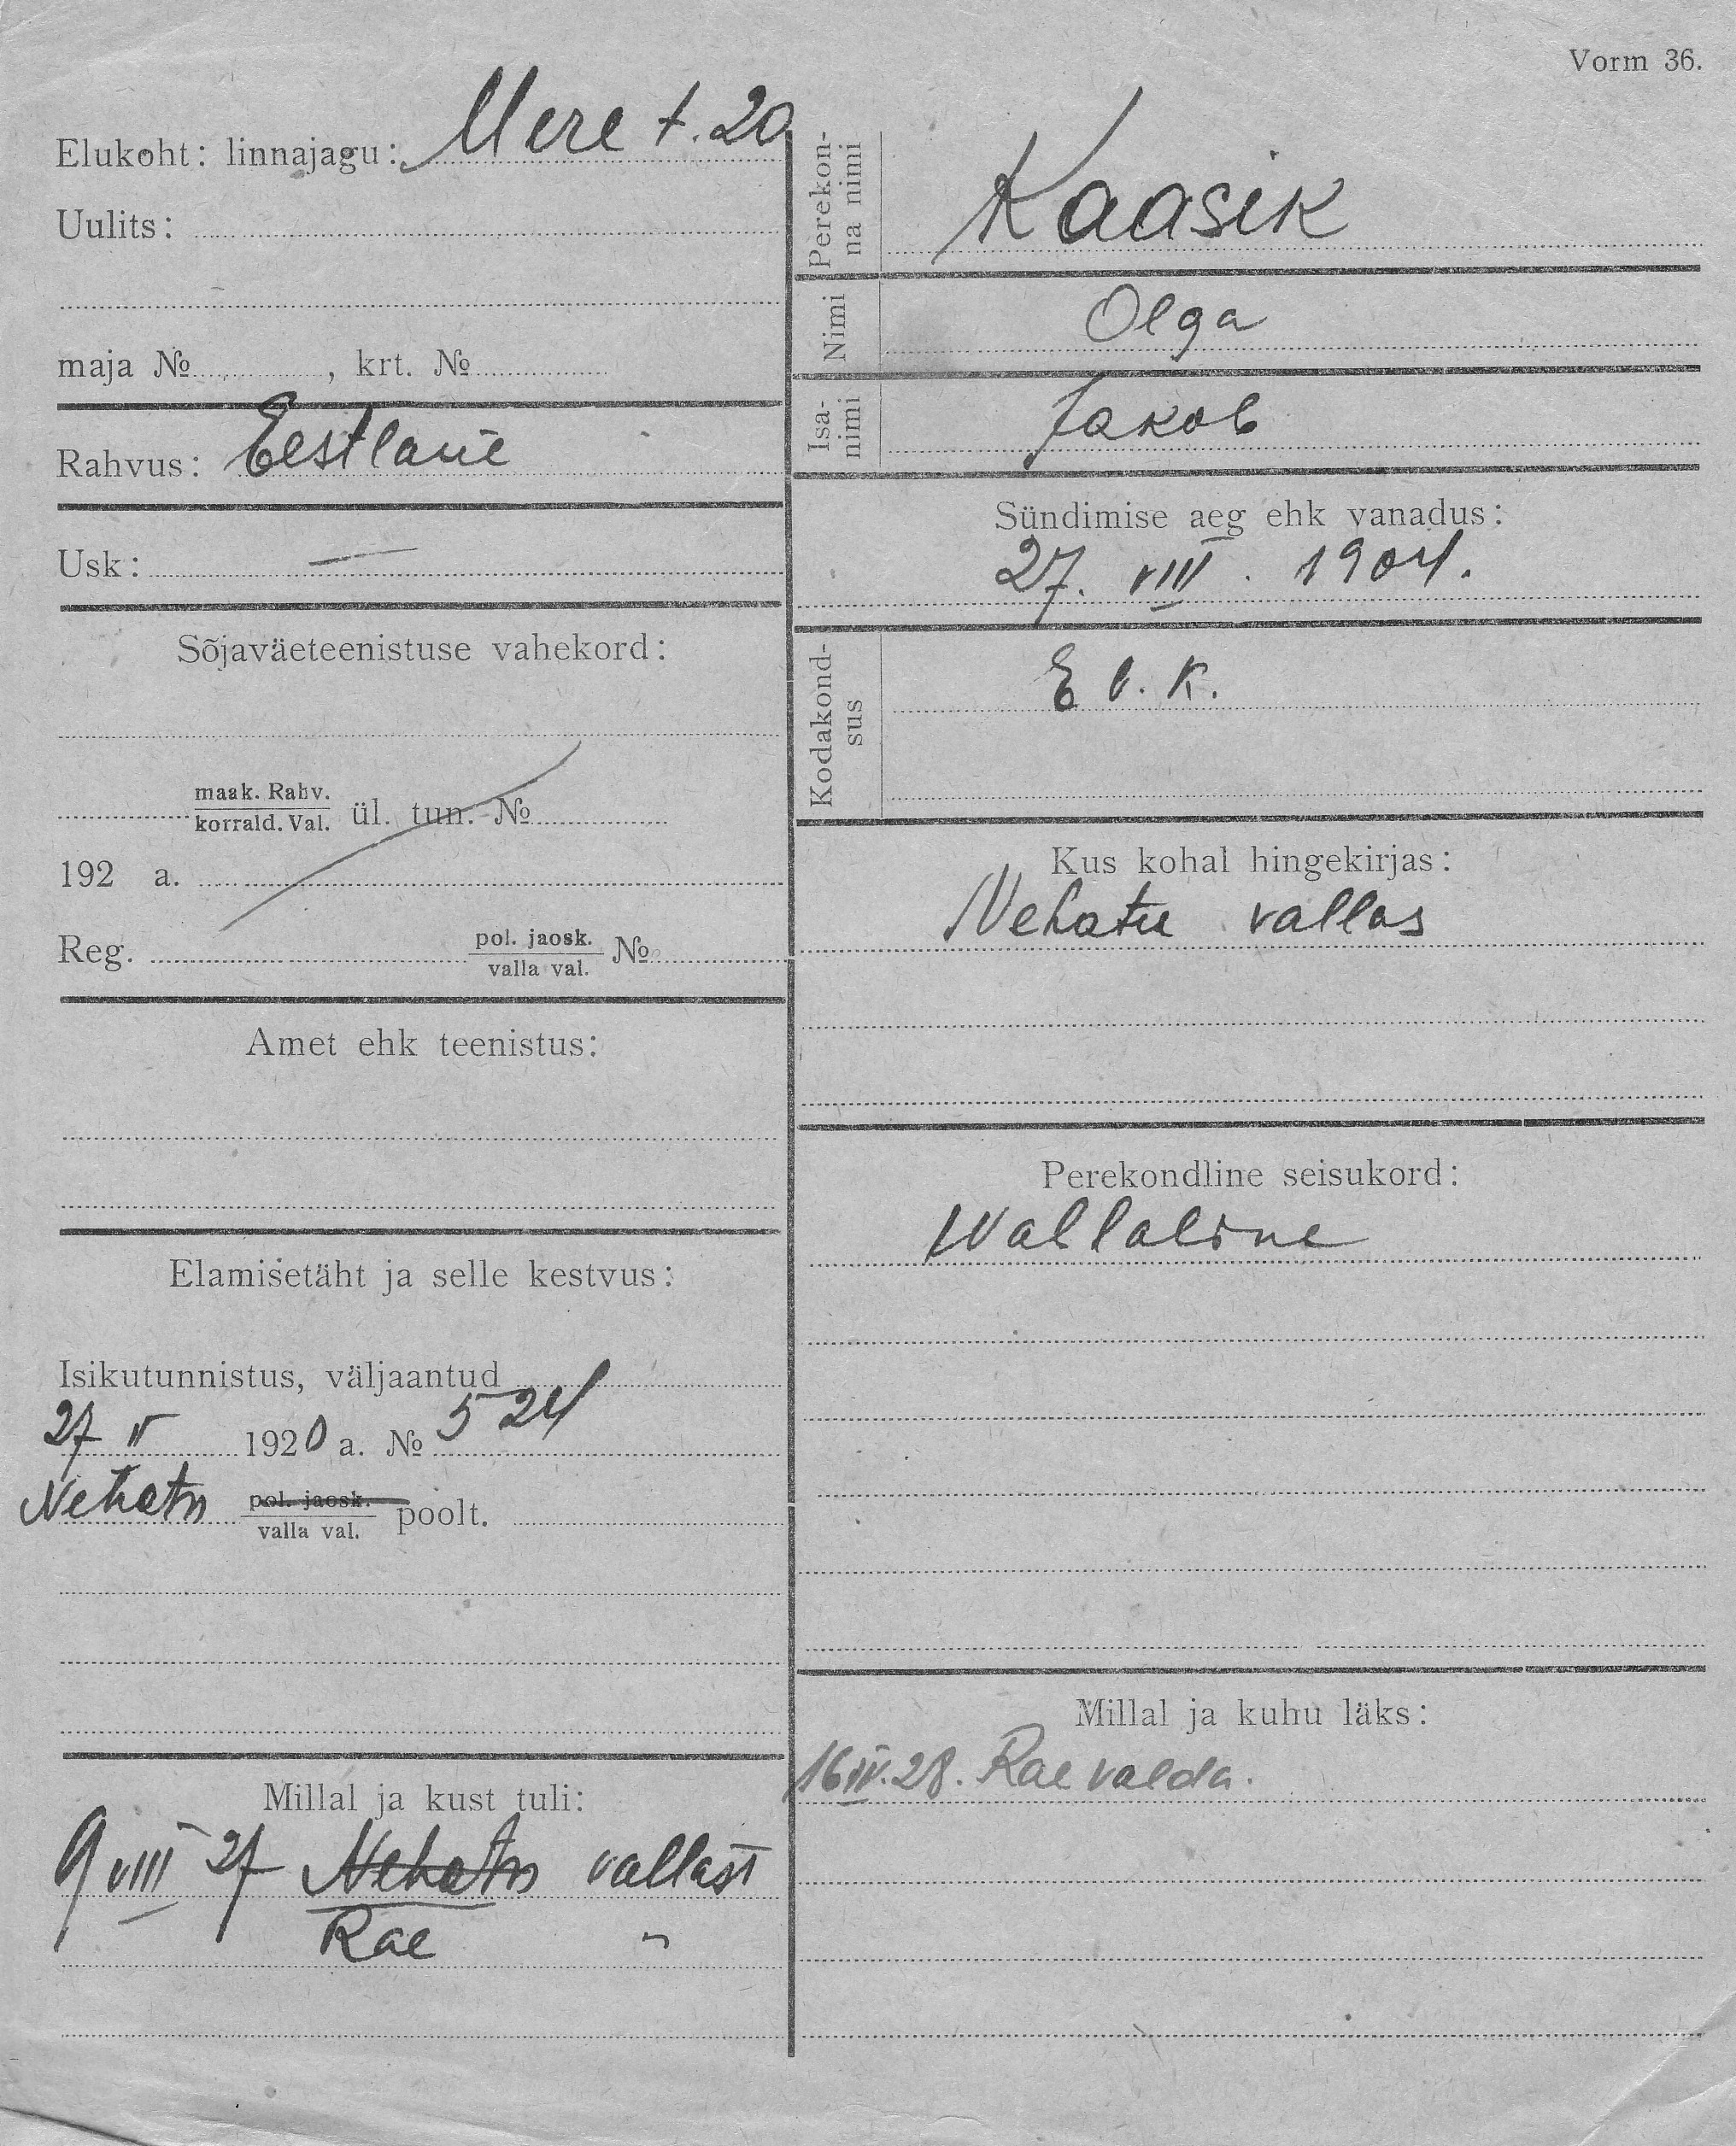 Vorm 36.
Elukoht: linnajagu: Mere t. 20
Uulits:
maja №, krt. №
Rahvus: Eestlane
Usk: —
Sõjaväeteenistuse vahekord:
maak. Rahv.
korrald. Val. ül. tun. №
192 a.
Reg. pol. jaosk. №
valla val.
Amet ehk teenistus:
Elamisetäht ja selle kestvus:
Isikutunnistus, väljaantud
27 V 1920 a. № 524
Nehatu pol. jaosk. poolt.
valla val.
Millal ja kust tuli:
9 VIII 27 Nehatu vallast
Rae "
Perekon-
na nimi
Kaasik
Nimi
Olga
Isa-
nimi
Jakob
Sündimise aeg ehk vanadus:
27. VIII. 1904.
Kodakond-
sus
E v. k.
Kus kohal hingekirjas:
Nehatu vallas
Perekondline seisukord:
Wallaline
Millal ja kuhu läks:
16 IV. 28. Rae valda.